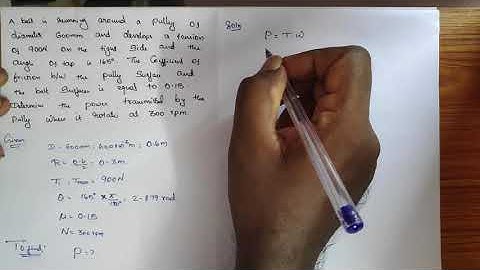 A belt is running around a pulley of
diameter 600mm and develops a tension
of 900N on the tight side and the
angle of lap is 165°. The coefficient of
friction b/w the pully surface and
the belt surface is equal to 0.15
Determine the power transmitted by the
pully when it rotates at 300 rpm.
Given
D = 600mm; 600x10⁻³m; 0.6m
R = 0.6/2 = 0.3m
T₁ = Tmax = 900N
θ = 165° × π/180° = 2.879 rad
μ = 0.15
N = 300 rpm
To find:
P = ?
Soln
P = T ω